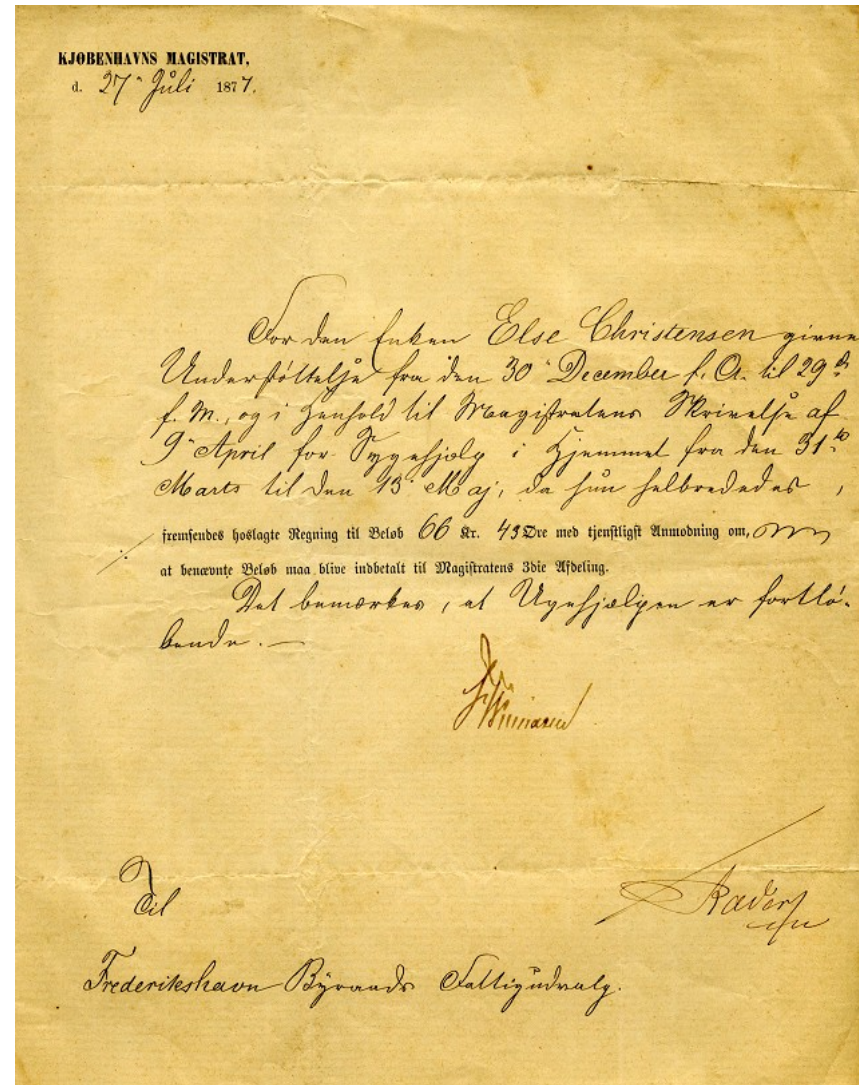 KJØBENHAVNS MAGISTRAT,
d. 27' Juli 1877.
For den Enken Else Christensen givne
Understøttelse fra den 30' December f. A. til 29 d.
f. M., og i Henhold til Magistratens Skrivelse af
9' April for Sygehjælp i Hjemmet fra den 31 te
Marts til den 13' Maj, da hun helbrededes,
fremsendes hoslagte Regning til Beløb 66 Kr. 43 Øre med tjenstligst Anmodning om,
at benævnte Beløb maa blive indbetalt til Magistratens 3die Afdeling.
Det bemærkes, at Ugehjælpen er fortlø-
bende. —
Til
Frederikshavn Byraads Fattigudvalg.